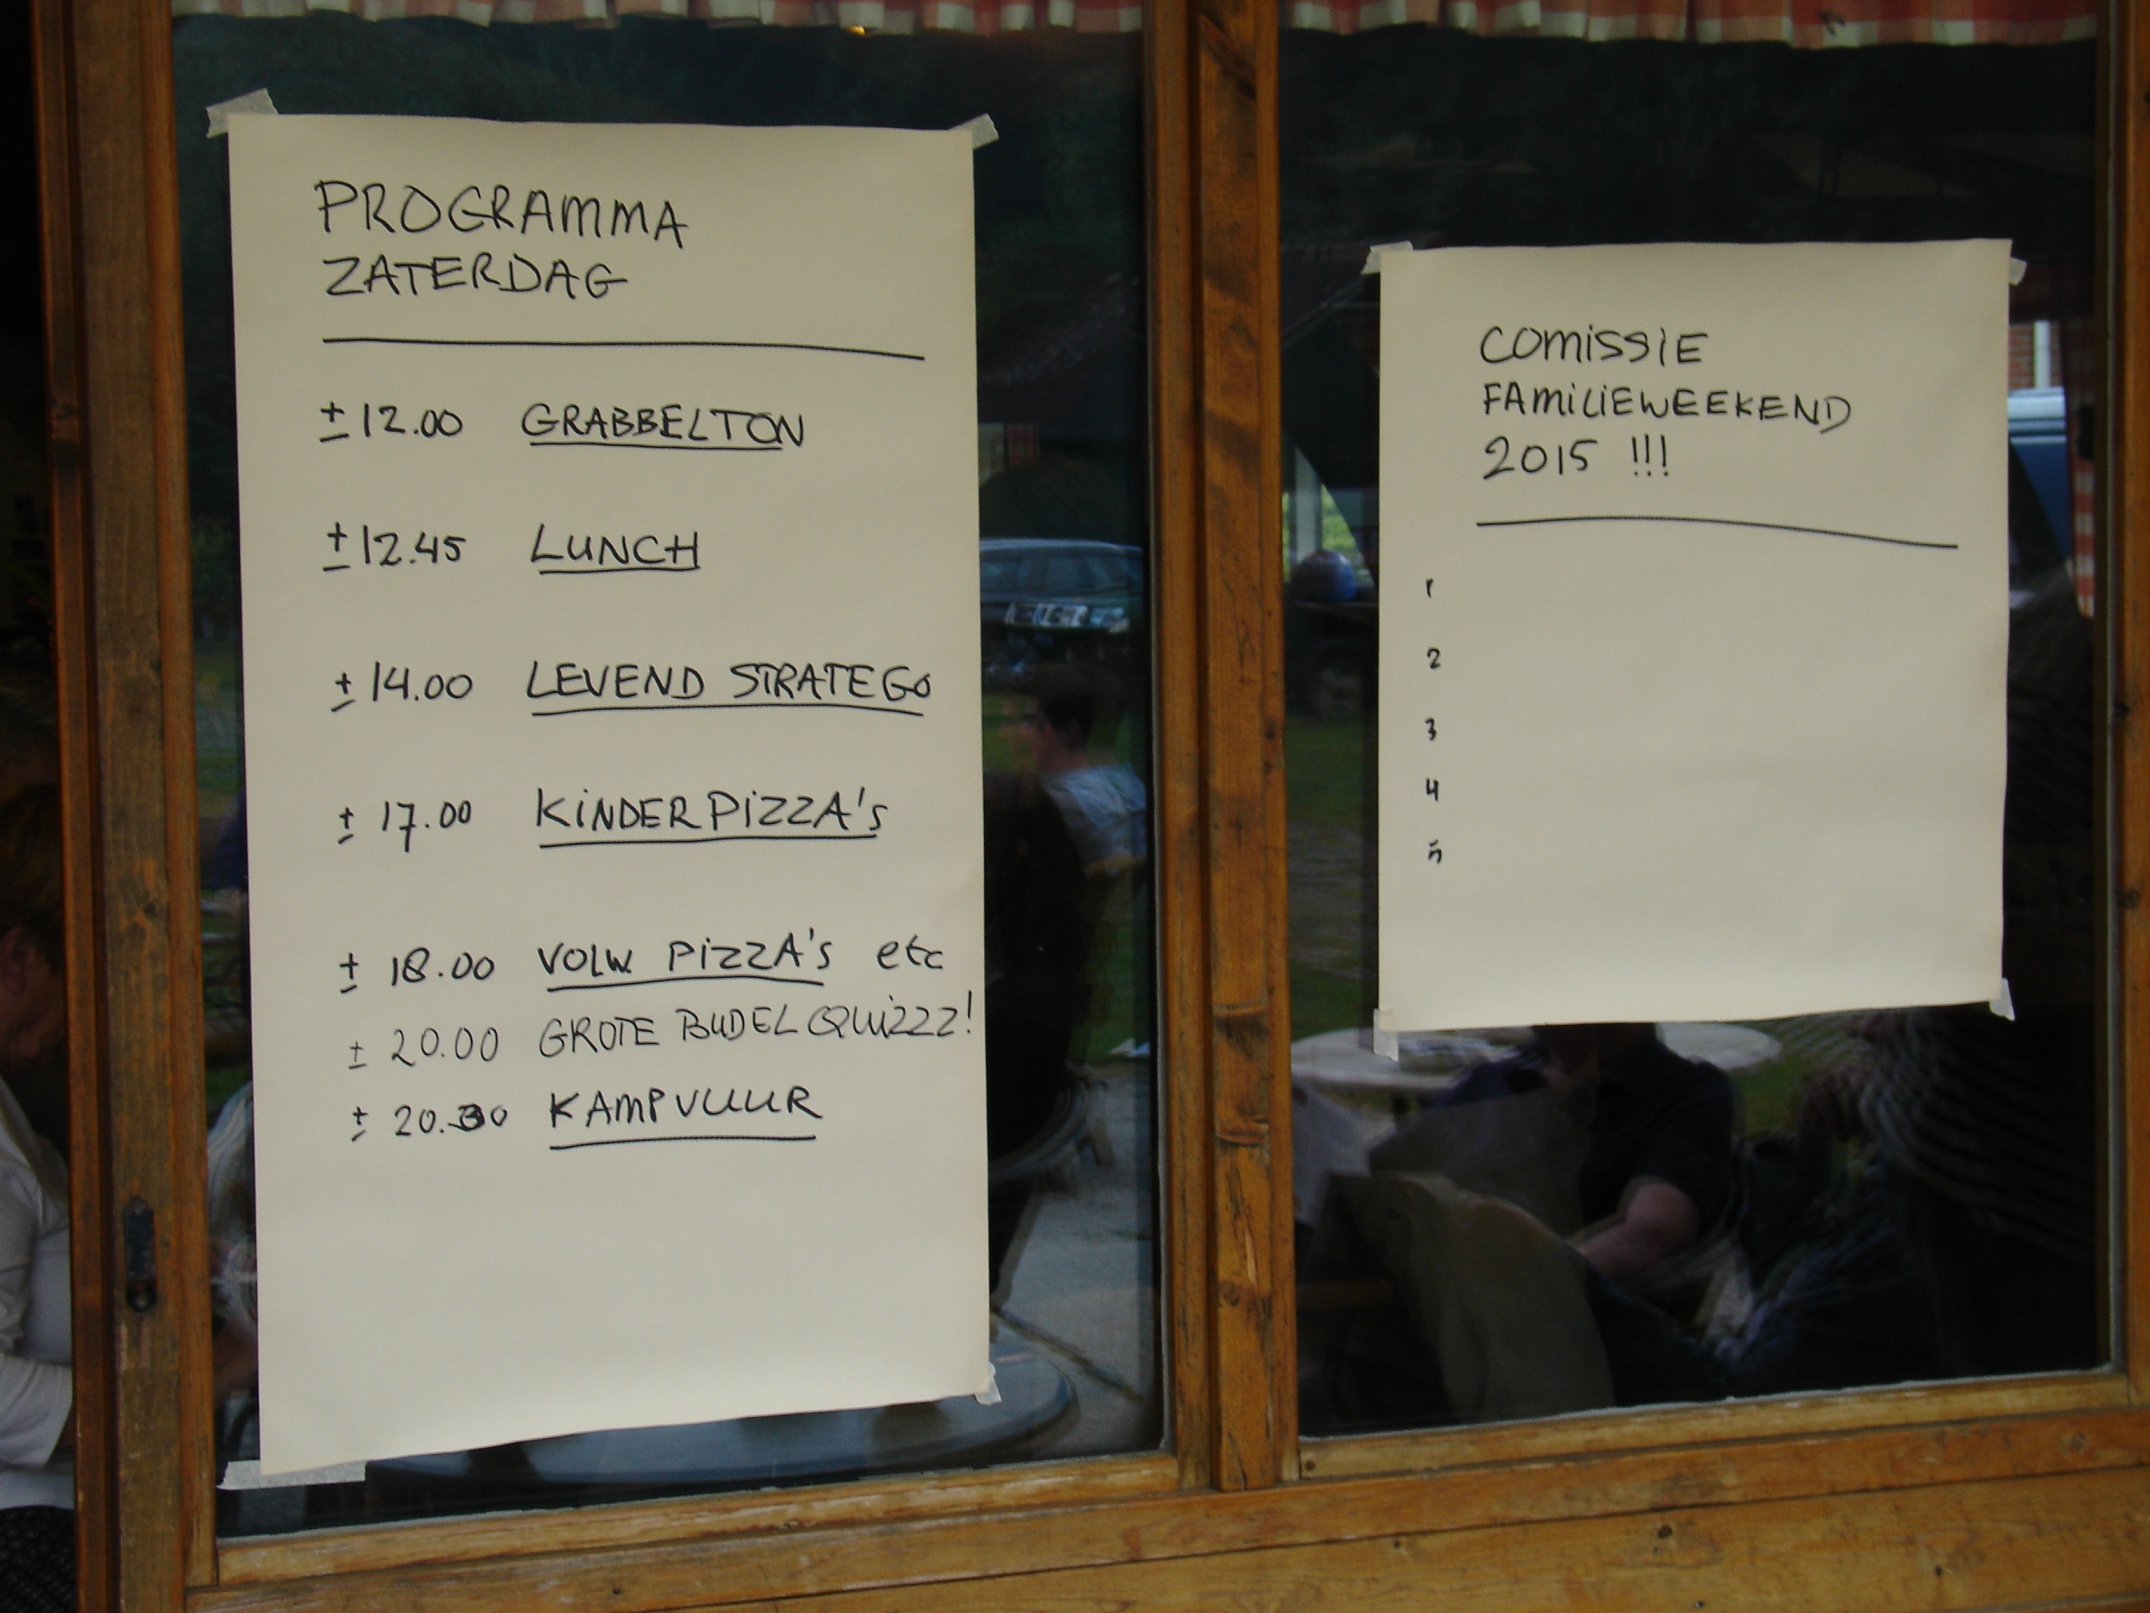 PROGRAMMA
ZATERDAG
± 12.00 GRABBELTON
± 12.45 LUNCH
± 14.00 LEVEND STRATEGO
± 17.00 KINDERPIZZA'S
± 18.00 VOLW. PIZZA'S etc
± 20.00 GROTE BUDEL QUIZZZ!
± 20.30 KAMPVUUR
COMISSIE
FAMILIEWEEKEND
2015 !!!
1
2
3
4
5